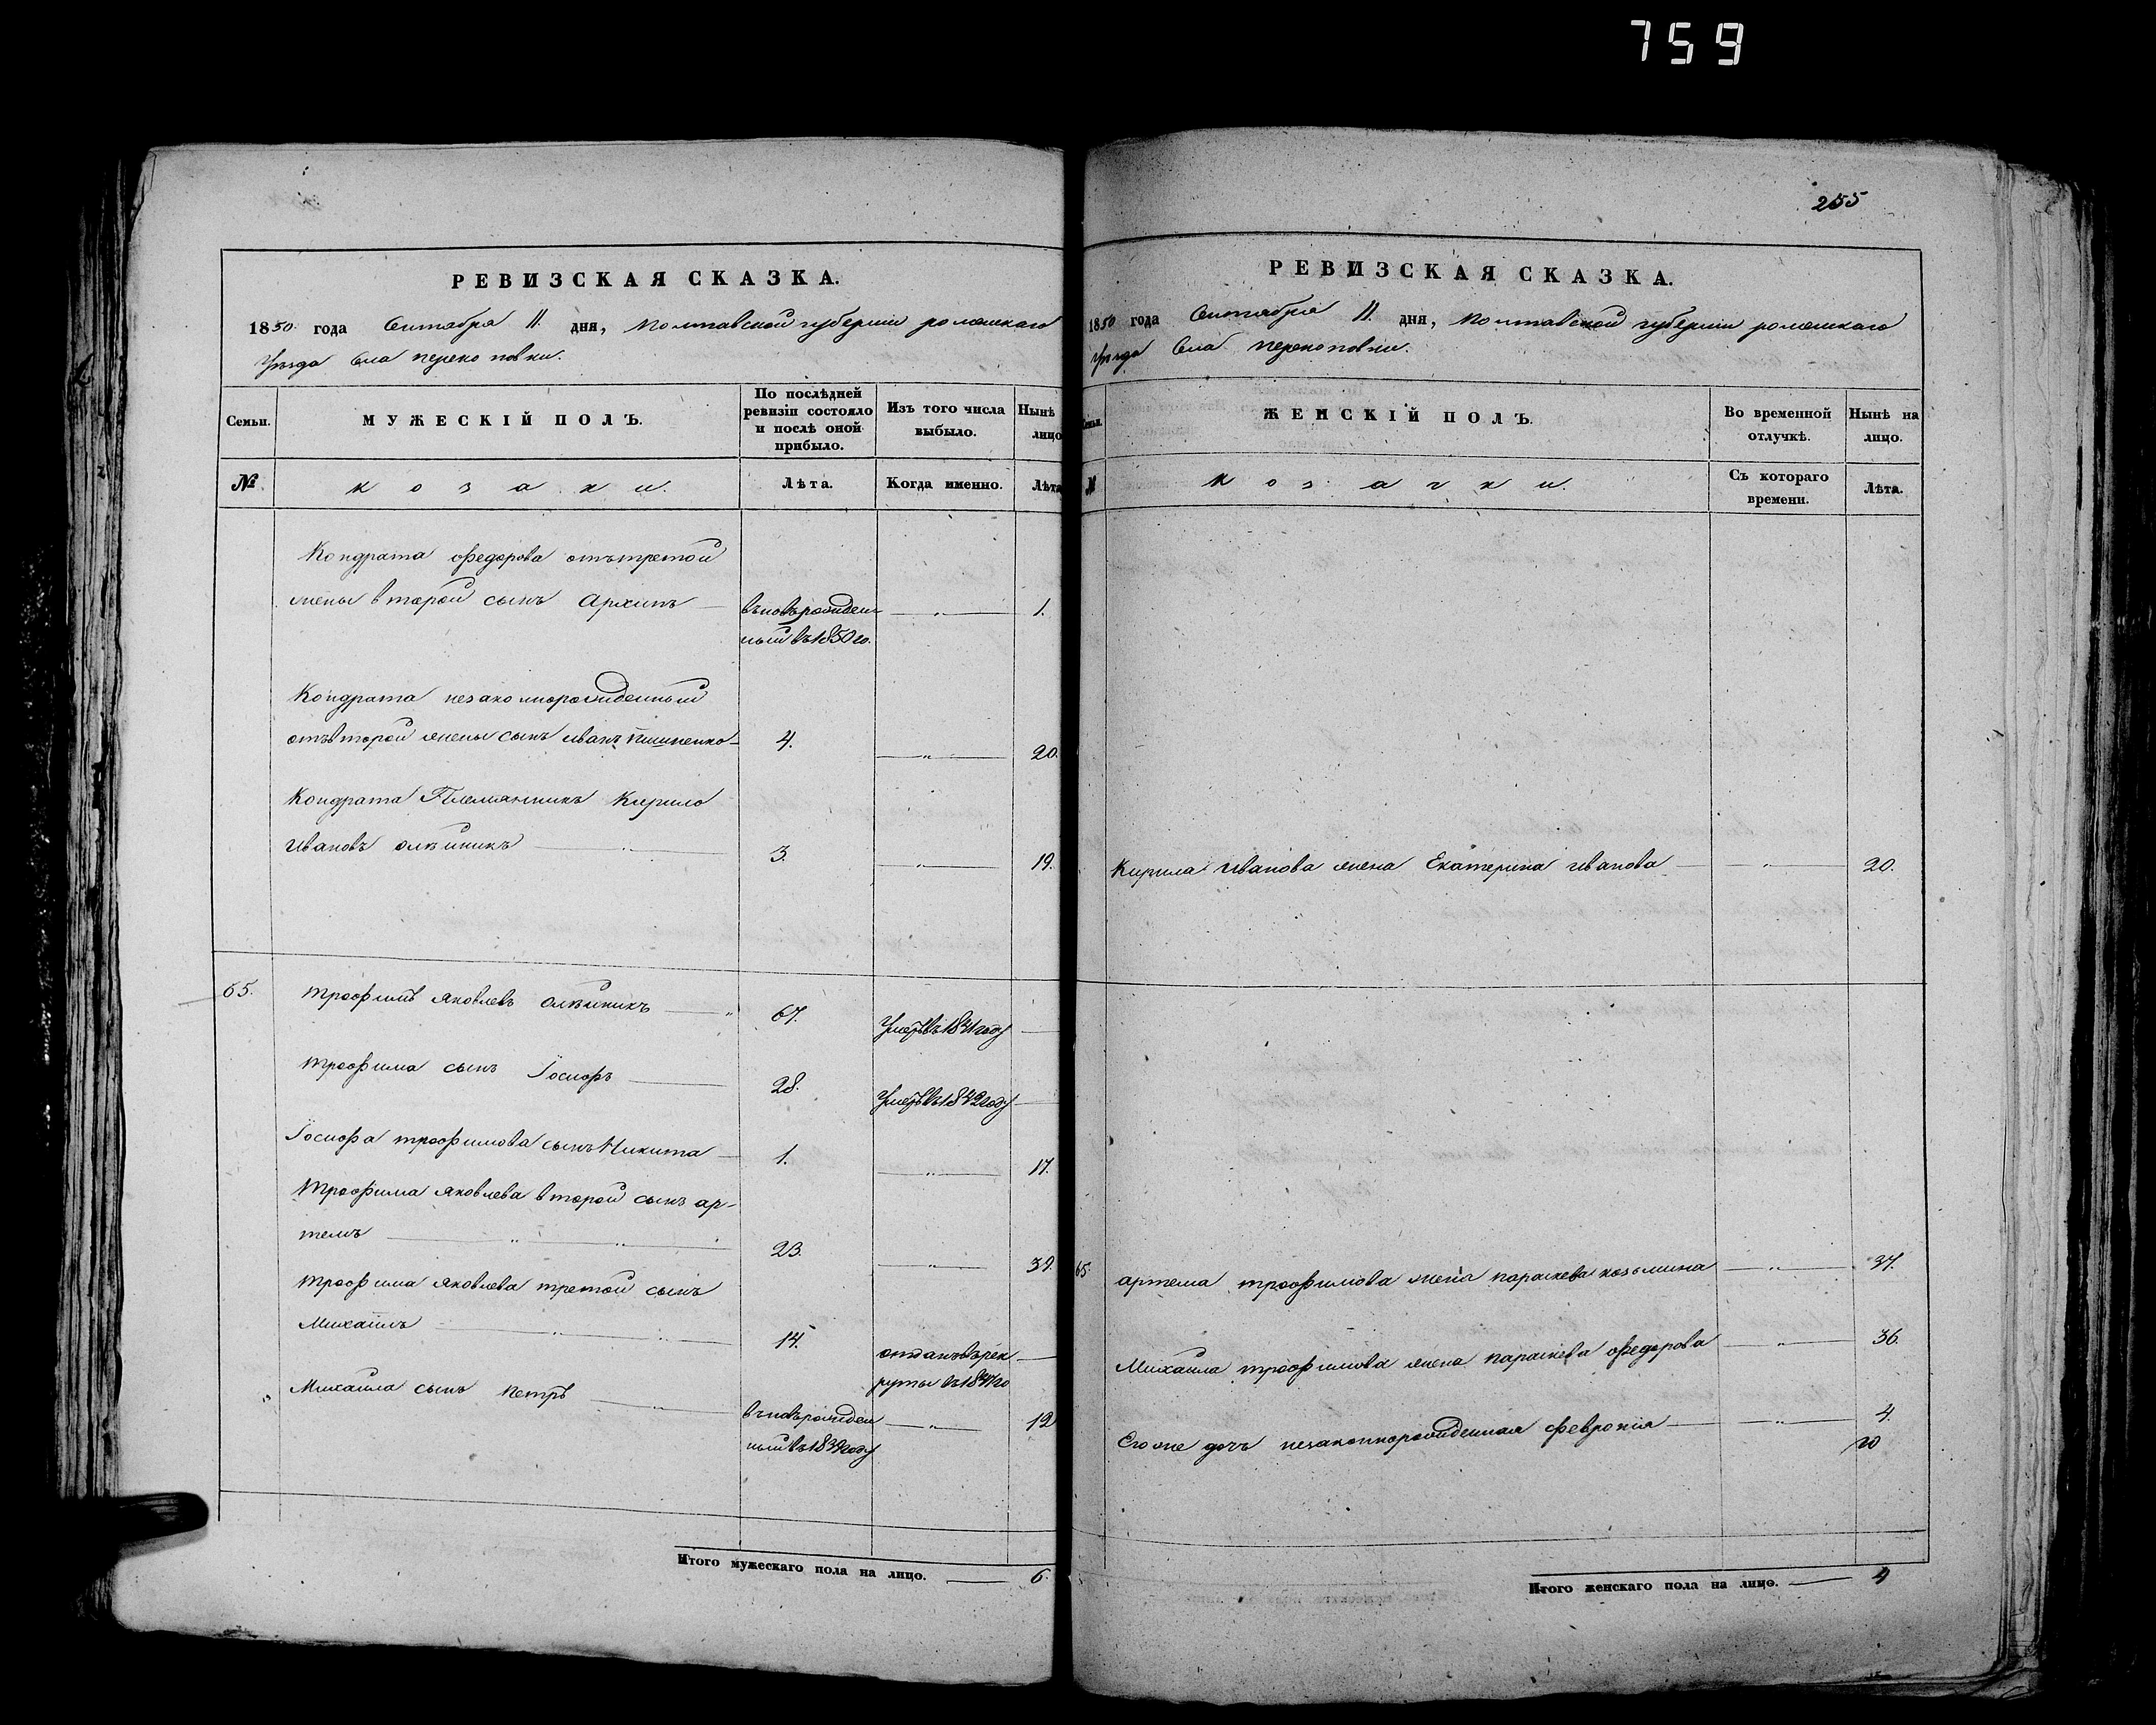 759
255
РЕВИЗСКАЯ СКАЗКА.
1850 года Сентября 11. дня, Полтавской губернии роменскаго
Уѣзда Села перекоповки.
Семьи.
МУЖЕСКІЙ ПОЛЪ.
По послѣдней
ревизіи состояло
и послѣ оной
прибыло.
Изъ того числа
выбыло.
Нынѣ
лицо
№
козаки.
Лѣта.
Когда именно.
Лѣта
Кондрата Федорова отъ третой
жены второй сынъ Архипъ
вновърожден
ный въ 1850 го.
1.
Кондрата незаконнорожденный
отъ второй жены сынъ иванъ
4.
20.
Кондрата Племянникъ Кирило
Ивановъ олѣйникъ
3.
19.
65.
трофимъ яковлевъ Олѣйникъ
67.
Умеръ въ 1841 году
трофима сынъ Іосифъ
28.
Умеръ въ 1842 году
Іосифа трофимова сынъ Никита
1.
17.
трофима яковлева второй сынъ ар-
темъ
23.
39.
трофима яковлева третой сынъ
Михаилъ
14.
отданъ в рек
руты въ 1841 го
Михаила сынъ петръ
вновърожден
ный въ 1839 году
12
Итого мужескаго пола на лицо. 6.
РЕВИЗСКАЯ СКАЗКА.
1850 года Сентября 11. дня, Полтавской губернии роменскаго
Уѣзда Села перекоповки.
Семьи.
ЖЕНСКІЙ ПОЛЪ.
Во временной
отлучкѣ.
Нынѣ на
лицо.
№
козачки.
Съ котораго
времени.
Лѣта.
Кирила Иванова жена Екатерина иванова
20.
65.
артема трофимова жена параскева козьмина
37.
Михаила трофимова жена параскева Федорова
36.
Его же дочь незаконнорожденная феврония
4.
го
Итого женскаго пола на лицо. 4